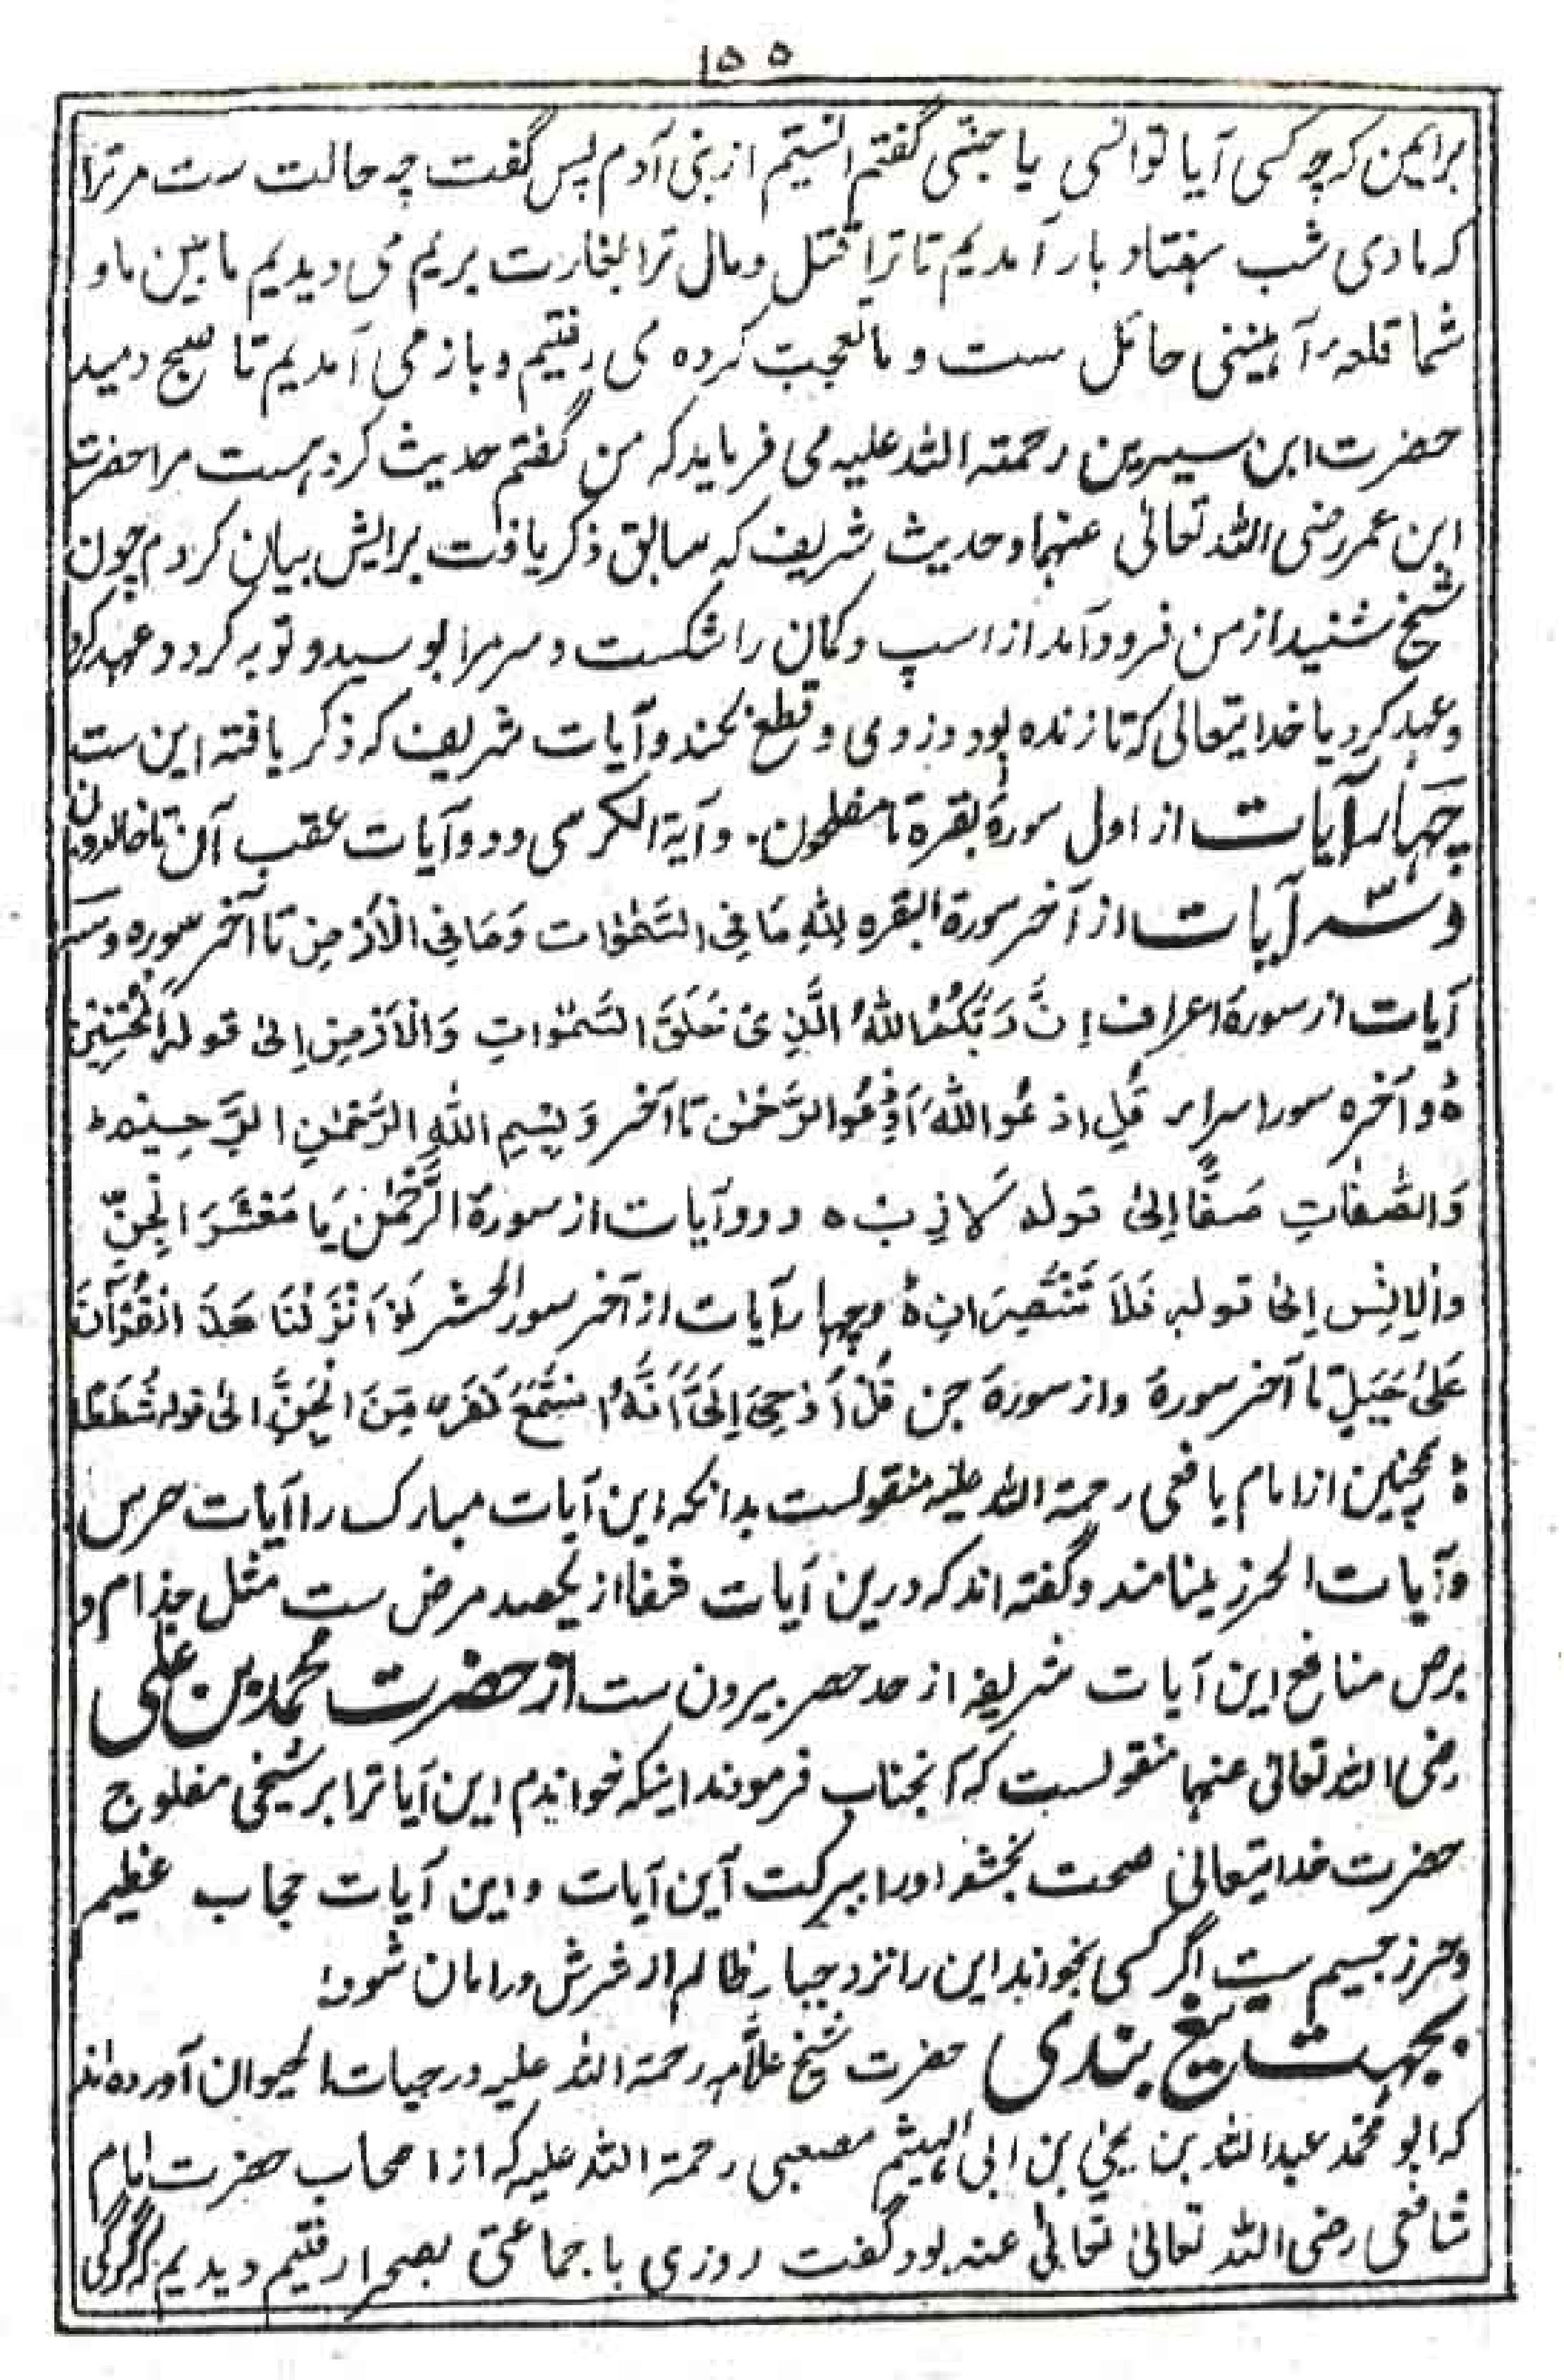 ۱۵۵
برایمن که چه کسی آیا تو انسی یا جنّی گفتم انسیتم از بنی آدم پس گفت چه حالت ست مر ترا
که ما دی شب هفتاد بار آمدیم تا ترا قتل و مال ترا بغارت بریم می دیدیم ما بین ما و
شما قلعهٔ آهنینی حائل ست و ما تعجب کرده می رفتیم و باز می آمدیم تا صبح دمید
حضرت ابن سیرین رحمته الله علیه می فرماید که من گفتم حدیث کرده ست مرا حضرت
ابن عمر رضی الله تعالی عنهما و حدیث شریف که سابق ذکر یافت برایش بیان کردم چون
شیخ شنید از من فرود آمد از اسپ و کمان را شکست و سر مرا بوسید و توبه کرد و عهد کرد
و عهد کرد با خدایتعالی که تا زنده بود دزدی و قطع نکند و آیات شریف که ذکر یافته این ست
چهار آیات از اول سورهٔ بقرة تا مفلحون. و آیة الکرسی و دو آیات عقب آن تا خالدون
و سه آیات از آخر سورة البقره لِلّٰهِ مَا فِی السَّمٰوٰات وَمَا فِی الْاَرْضِ تا آخر سوره و سه
آیات از سورهٔ اعراف اِنَّ رَبَّكُمُ اللّٰهُ الَّذِیْ خَلَقَ السَّمٰوَاتِ وَالْاَرْضِ اِلیٰ قوله الْمُحْسِنِیْنَ
ه و آخره سورا سراء قُلِ ادْعُوا اللّٰهَ اَوِدْعُوا الرَّحْمٰنَ تا آخر وَبِسْمِ اللّٰهِ الرَّحْمٰنِ الرَّحِیْمِ ط
وَالصّٰفّٰتِ صَفًّا اِلیٰ قوله لَازِبْ ه و دو آیات از سورهٔ الرَّحْمٰن یَا مَعْشَرَ الْجِنِّ
وَالْاِنْسِ اِلیٰ قوله فَلَا تَنْتَصِرَانِ ه و چهار آیات از آخر سور الحشر لَوْ اَنْزَلْنَا هٰذَا الْقُرْآنَ
عَلیٰ جَبَلٍ تا آخر سورهٔ و از سورهٔ جن قُلْ اُوْحِیَ اِلَیَّ اَنَّهُ اسْتَمَعَ نَفَرٌ مِّنَ الْجِنِّ الیٰ قوله شَطَطًا
ه همچنین از امام یافعی رحمة الله علیه منقولست بدانکه این آیات مبارک را آیات حرس
و آیات الحرز مینامند و گفته اند که درین آیات شفا از یکصد مرض ست مثل جذام و
برص منافع این آیات شریفه از حد حصر بیرون ست از حضرت محمد بن علی
رضی الله تعالی عنهما منقولست که آنجناب فرمودند اینکه خواندم این آیات را بر شیخی مفلوج
حضرت خدایتعالی صحت بخشد او را ببرکت آین آیات و این آیات حجاب عظیم
و حرز جسیم ست اگر کسی بخواند این را نزد جبار ظالم از شرش در امان شود
بجهت تیغ بندی حضرت شیخ علّامه رحمة الله علیه در حیات الحیوان آورده اند
که ابو محمد عبد الله بن یحیٰ بن ابی الهیثم مصعبی رحمة الله علیه که از اصحاب حضرت امام
شافعی رضی الله تعالیٰ تعالیٰ عنه بود گفت روزی با جماعتی بصحرا رفتیم دیدیم که گرگی